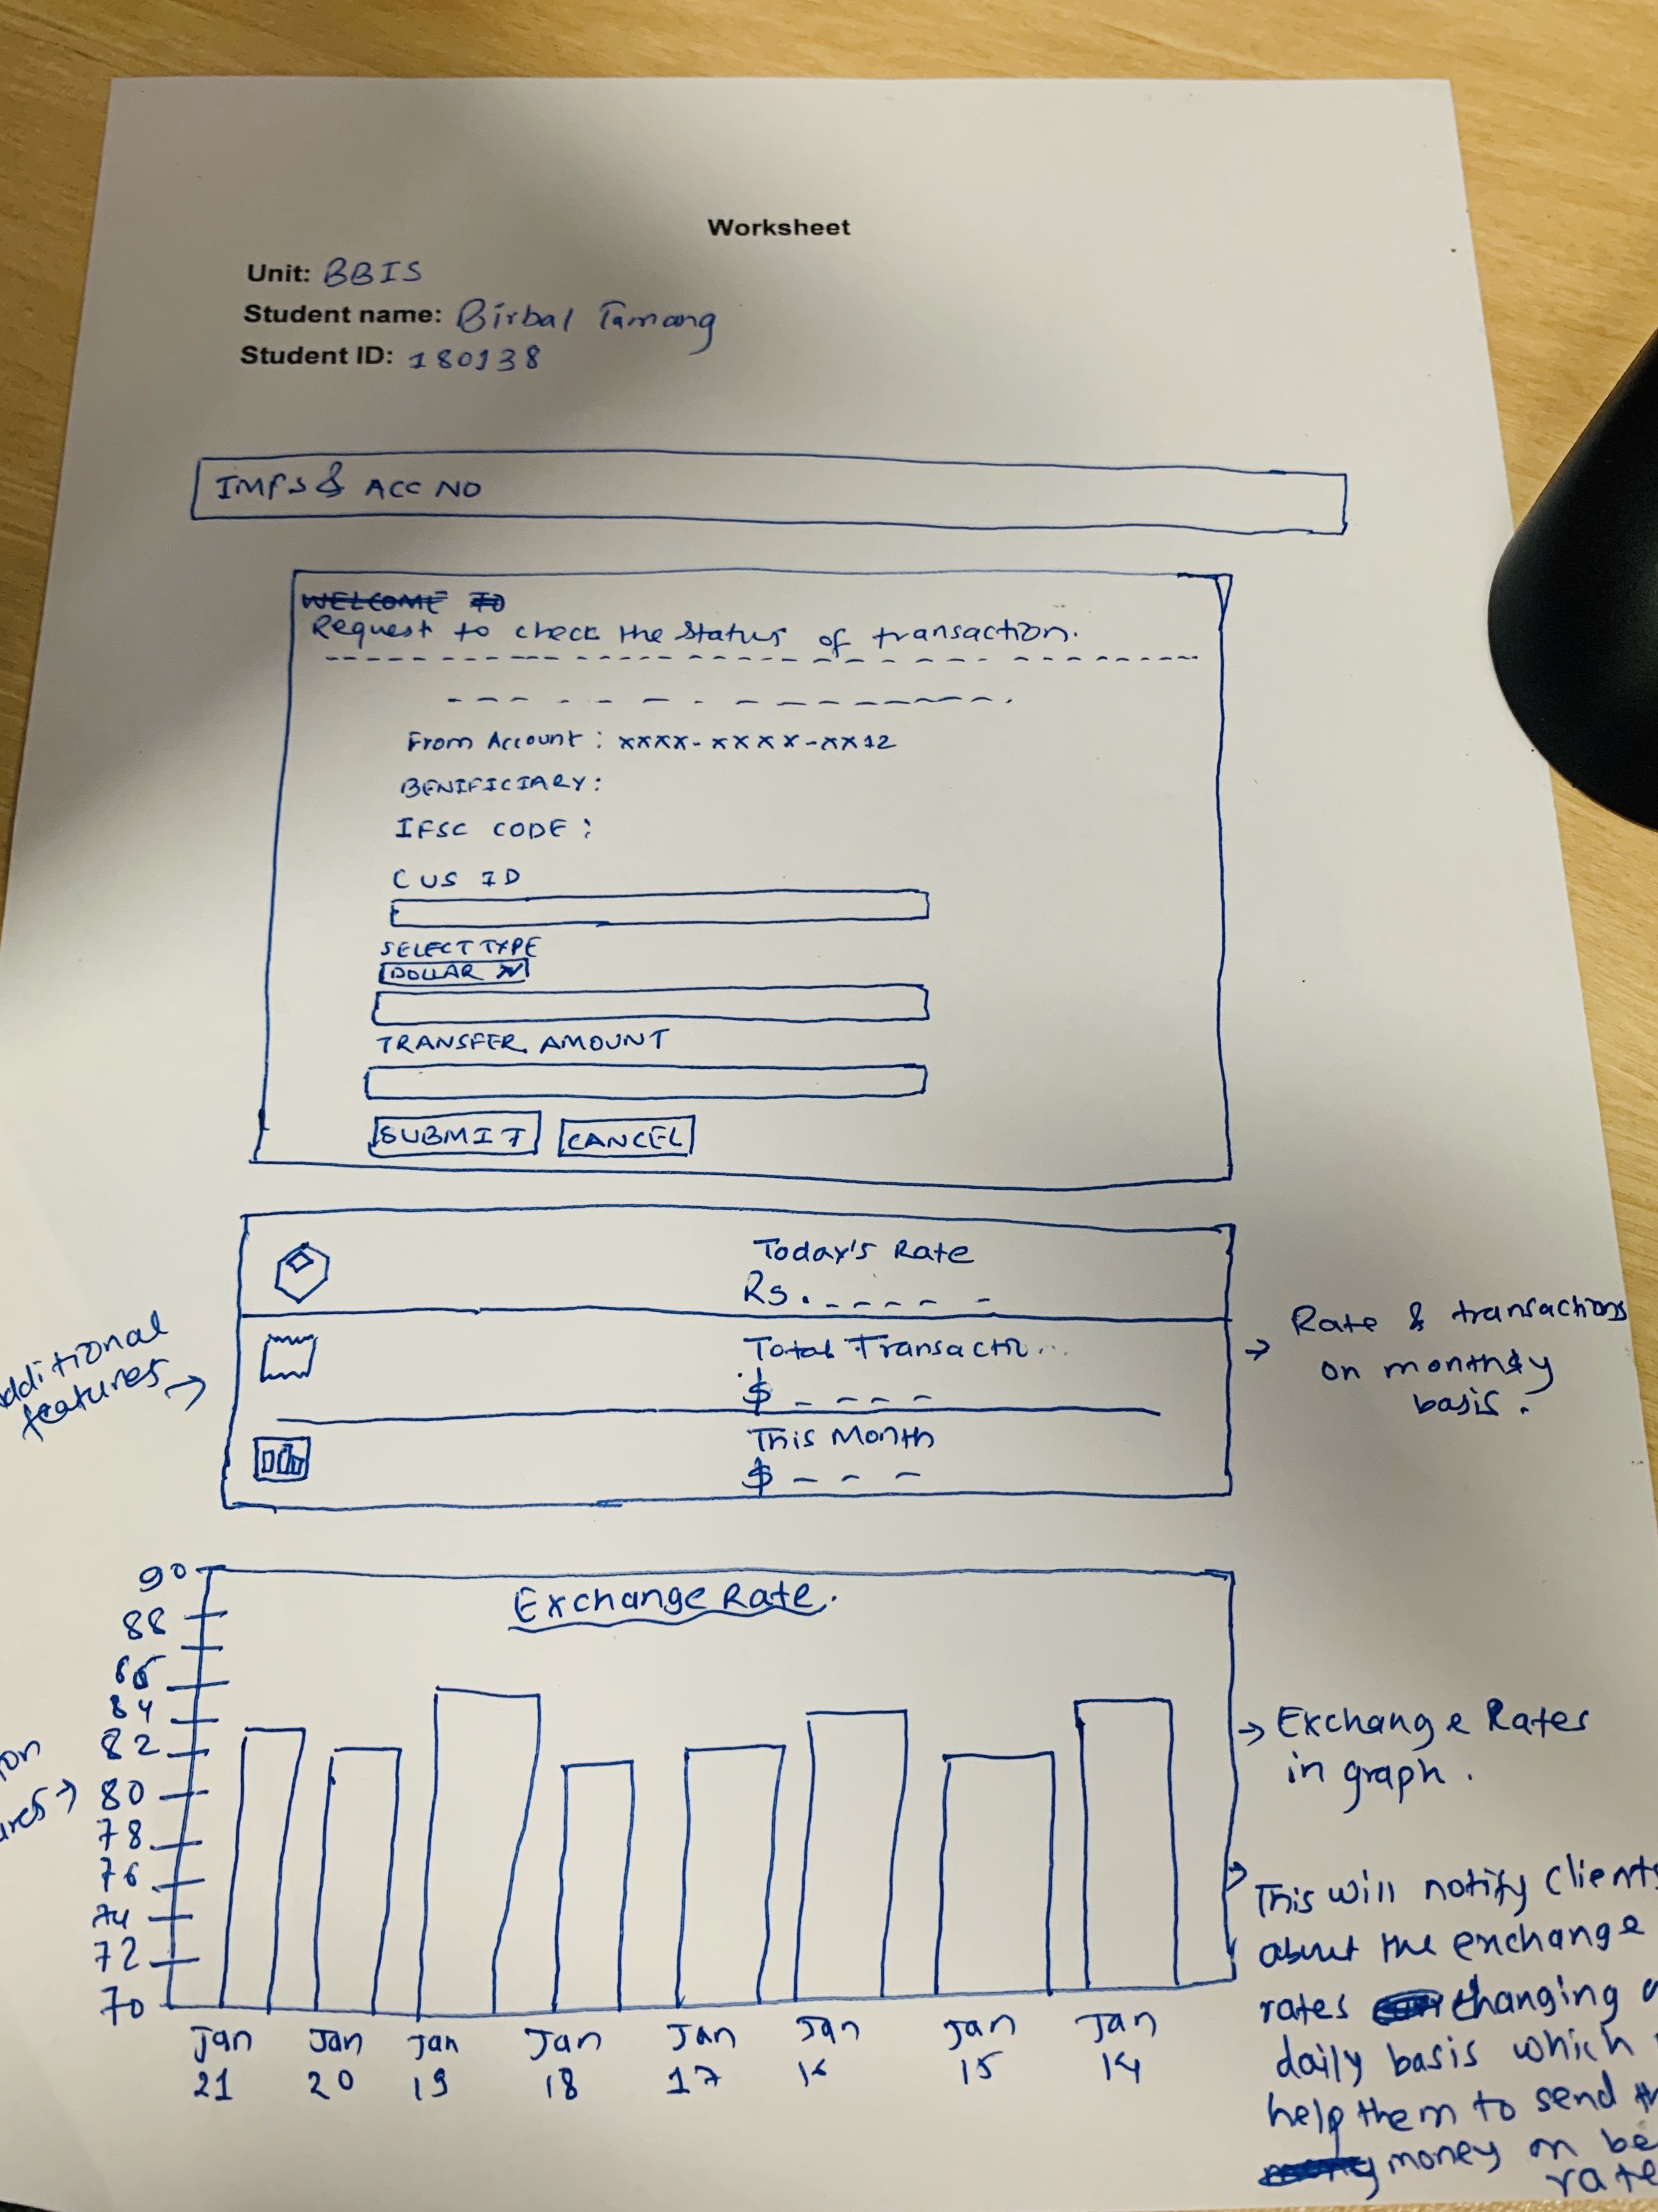 Worksheet
Unit: BBIS
Student name: Birbal Tamang
Student ID: 180138
IMPS & ACC NO
WELCOME TO
Request to check the status of transaction.
From Account : xxxx-xxxx-xx12
BENIFICIARY:
IFSC CODE :
CUS ID
SELECT TYPE
DOLLAR
TRANSFER AMOUNT
SUBMIT CANCEL
Today's Rate
Rs. - - - - -
Total Transactio...
$ - - - -
This Month
$ - - -
dditional
features →
→ Rate & transactions
on monthly
basis.
Exchange Rate.
90
88
86
84
82
80
78
76
74
72
70
Jan 21
Jan 20
Jan 19
Jan 18
Jan 17
Jan 16
Jan 15
Jan 14
→ Exchange Rates
in graph.
This will notify clients
about the exchange
rates changing
daily basis which
help them to send
money on
rate